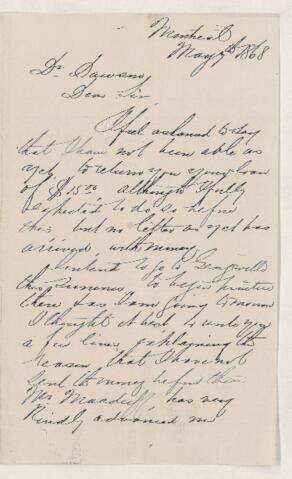 Montreal
May 7th 1868
Dr Dawson,
Dear Sir
I feel ashamed to say
that I have not been able as
yet to return you your loan
of $15.00 although I fully
expected to do so before
this but no letter as yet has
arrived with money
I intend to go to
this summer to begin practice
there & as I am going tomorrow
I thought it best to write you
a few lines explaining the
reason that I have not
send the money before this.
Mr Macduff has very
Kindly advanced me